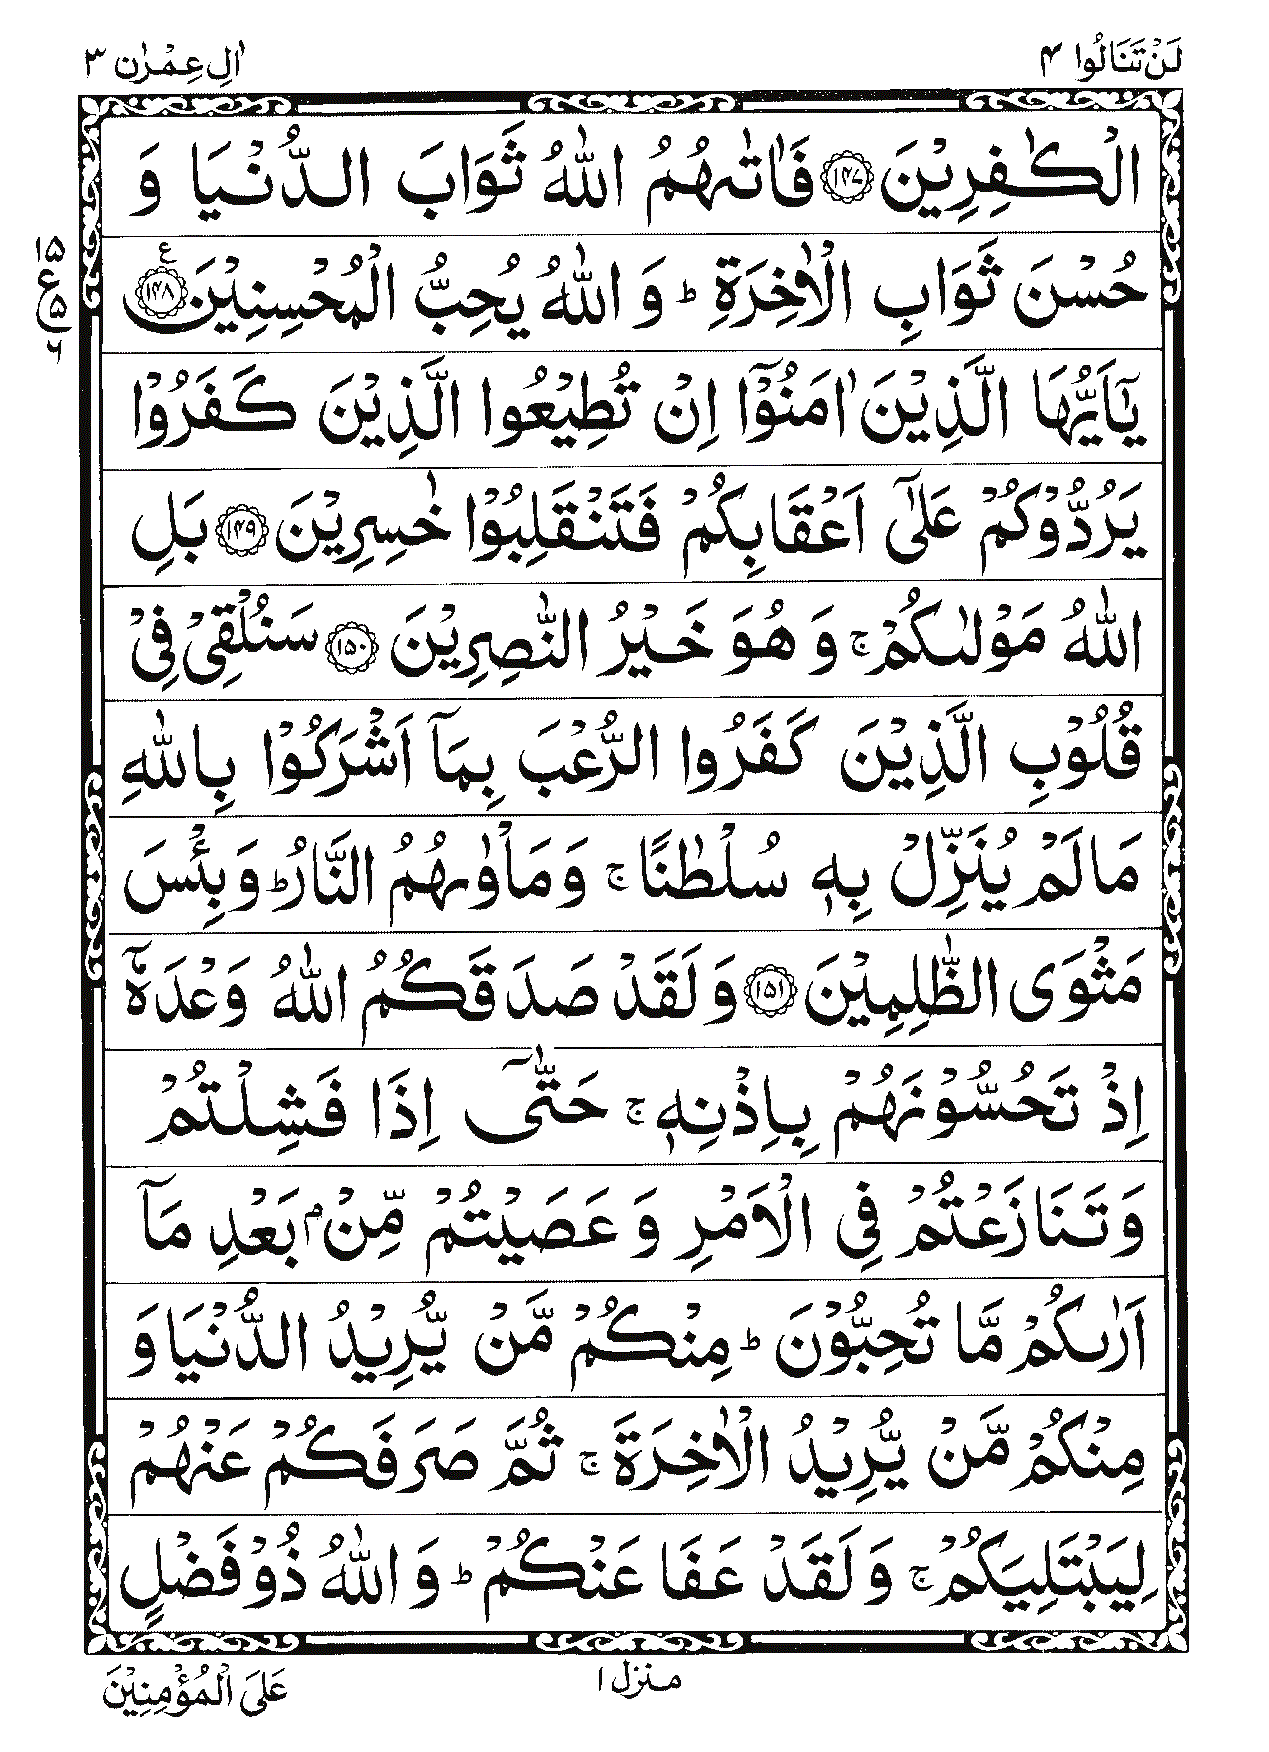 لَنْ تَنَالُوا ۴
اٰلِ عِمْرٰن ۳
الْكٰفِرِيْنَ ۱۴۷ فَاٰتٰىهُمُ اللّٰهُ ثَوَابَ الدُّنْيَا وَ
حُسْنَ ثَوَابِ الْاٰخِرَةِ ؕ وَ اللّٰهُ يُحِبُّ الْمُحْسِنِيْنَ ۱۴۸ ع
۱۵
ع
۵
۶
يٰۤاَيُّهَا الَّذِيْنَ اٰمَنُوْۤا اِنْ تُطِيْعُوا الَّذِيْنَ كَفَرُوْا
يَرُدُّوْكُمْ عَلٰۤى اَعْقَابِكُمْ فَتَنْقَلِبُوْا خٰسِرِيْنَ ۱۴۹ بَلِ
اللّٰهُ مَوْلٰىكُمْ ۚ وَ هُوَ خَيْرُ النّٰصِرِيْنَ ۱۵۰ سَنُلْقِيْ فِيْ
قُلُوْبِ الَّذِيْنَ كَفَرُوا الرُّعْبَ بِمَاۤ اَشْرَكُوْا بِاللّٰهِ
مَا لَمْ يُنَزِّلْ بِهٖ سُلْطٰنًا ۚ وَ مَاْوٰىهُمُ النَّارُ ؕ وَ بِئْسَ
مَثْوَى الظّٰلِمِيْنَ ۱۵۱ وَ لَقَدْ صَدَقَكُمُ اللّٰهُ وَعْدَهٗۤ
اِذْ تَحُسُّوْنَهُمْ بِاِذْنِهٖ ۚ حَتّٰۤى اِذَا فَشِلْتُمْ
وَتَنَازَعْتُمْ فِي الْاَمْرِ وَ عَصَيْتُمْ مِّنْۢ بَعْدِ مَاۤ
اَرٰىكُمْ مَّا تُحِبُّوْنَ ؕ مِنْكُمْ مَّنْ يُّرِيْدُ الدُّنْيَا وَ
مِنْكُمْ مَّنْ يُّرِيْدُ الْاٰخِرَةَ ۚ ثُمَّ صَرَفَكُمْ عَنْهُمْ
لِيَبْتَلِيَكُمْ ۚ وَ لَقَدْ عَفَا عَنْكُمْ ؕ وَ اللّٰهُ ذُوْ فَضْلٍ
منزل ۱
عَلَى الْمُؤْمِنِيْنَ